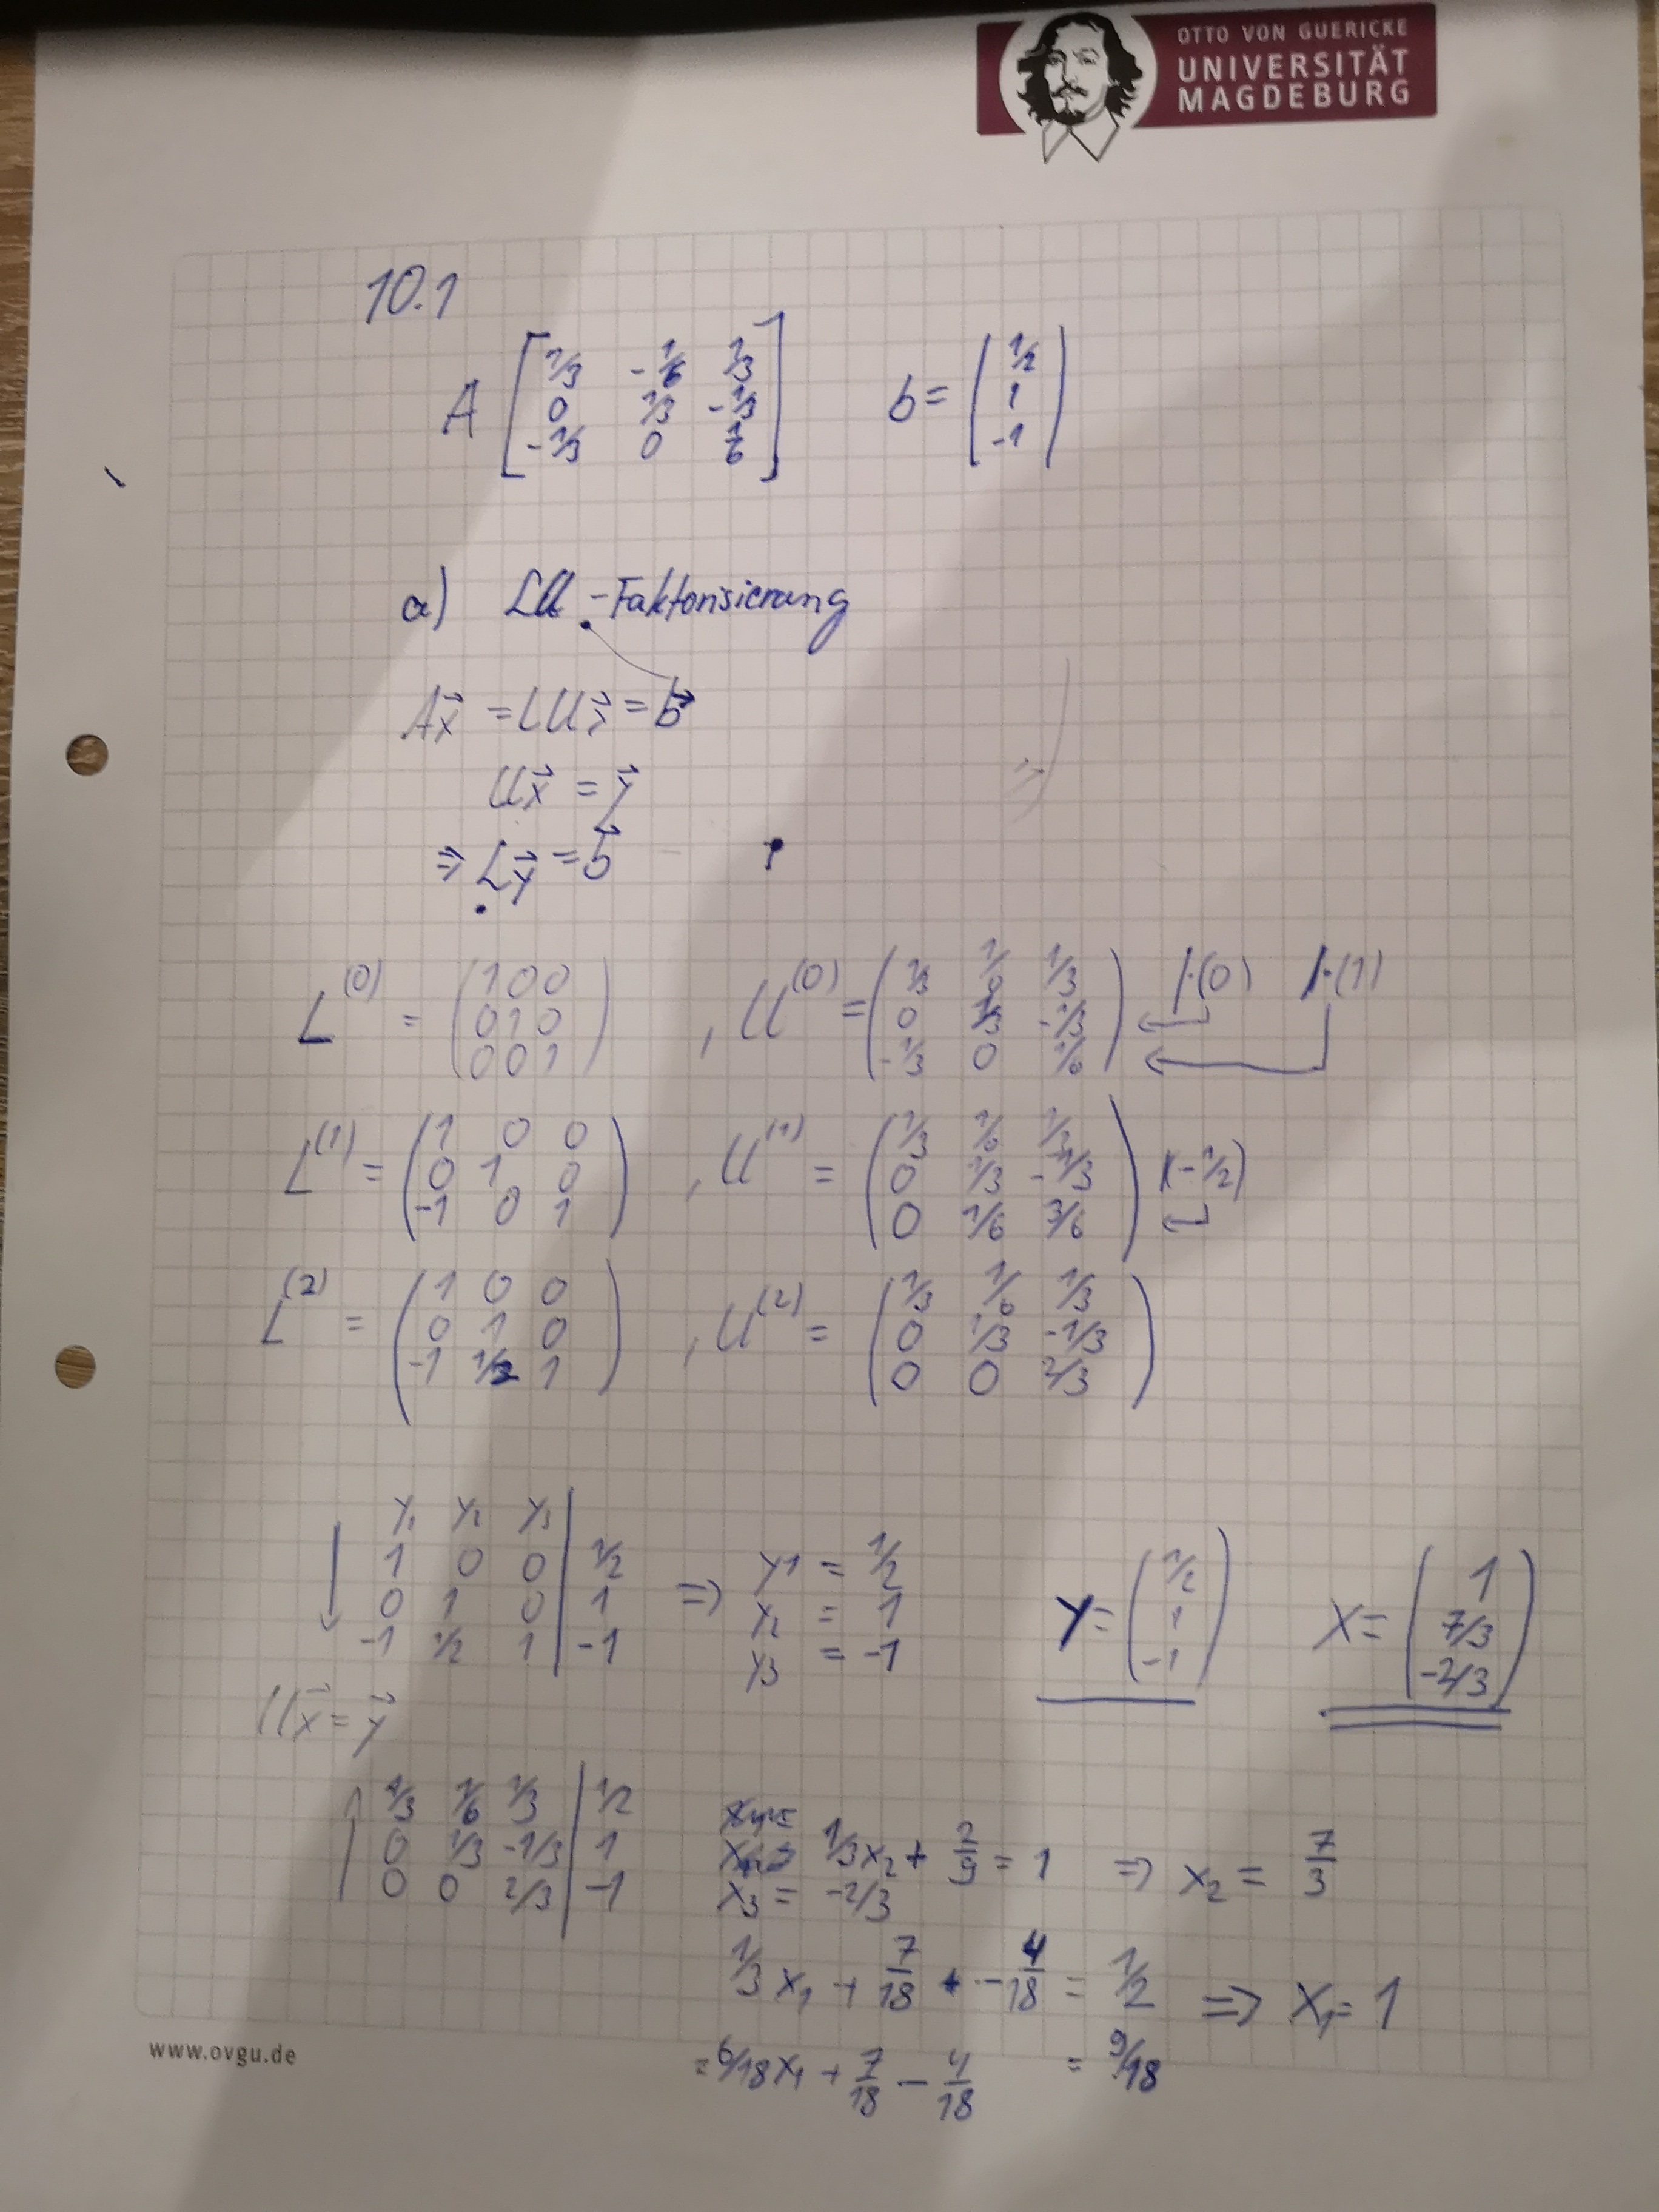 OTTO VON GUERICKE
UNIVERSITÄT
MAGDEBURG
10.1
A [ 1/3 -1/6 1/3
0 1/3 -1/3
-1/3 0 1/6 ]
b = ( 1/2
1
-1 )
a) LU - Faktorisierung
Ax⃗ = LUx⃗ = b⃗
Ux⃗ = y⃗
⇒ Ly⃗ = b⃗
L^(0) = ( 1 0 0
0 1 0
0 0 1 )
, U^(0) = ( 1/3 1/6 1/3
0 1/3 -1/3
-1/3 0 1/6 ) |·(0) |·(1)
L^(1) = ( 1 0 0
0 1 0
-1 0 1 )
, U^(1) = ( 1/3 1/6 1/3
0 1/3 -1/3
0 1/6 3/6 ) |(-1/2)
L^(2) = ( 1 0 0
0 1 0
-1 1/2 1 )
, U^(2) = ( 1/3 1/6 1/3
0 1/3 -1/3
0 0 2/3 )
y1 y2 y3
1 0 0 | 1/2
0 1 0 | 1
-1 1/2 1 | -1
⇒ y1 = 1/2
y2 = 1
y3 = -1
Y = ( 1/2
1
-1 )
X = ( 1
7/3
-2/3 )
Ux⃗ = y⃗
1/3 1/6 1/3 | 1/2
0 1/3 -1/3 | 1
0 0 2/3 | -1
1/3 x2 + 2/9 = 1 ⇒ x2 = 7/3
x3 = -2/3
1/3 x1 + 7/18 + -4/18 = 1/2 ⇒ x1 = 1
= 6/18 x1 + 7/18 - 4/18 = 9/18
www.ovgu.de